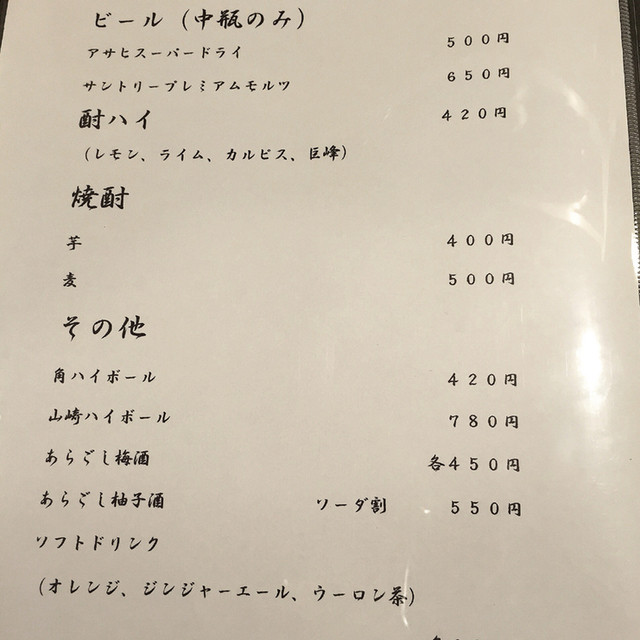 ビール（中瓶のみ）
アサヒスーパードライ ５００円
サントリープレミアムモルツ ６５０円
酎ハイ ４２０円
（レモン、ライム、カルピス、巨峰）
焼酎
芋 ４００円
麦 ５００円
その他
角ハイボール ４２０円
山崎ハイボール ７８０円
あらごし梅酒 各４５０円
あらごし柚子酒 ソーダ割 ５５０円
ソフトドリンク
（オレンジ、ジンジャーエール、ウーロン茶）